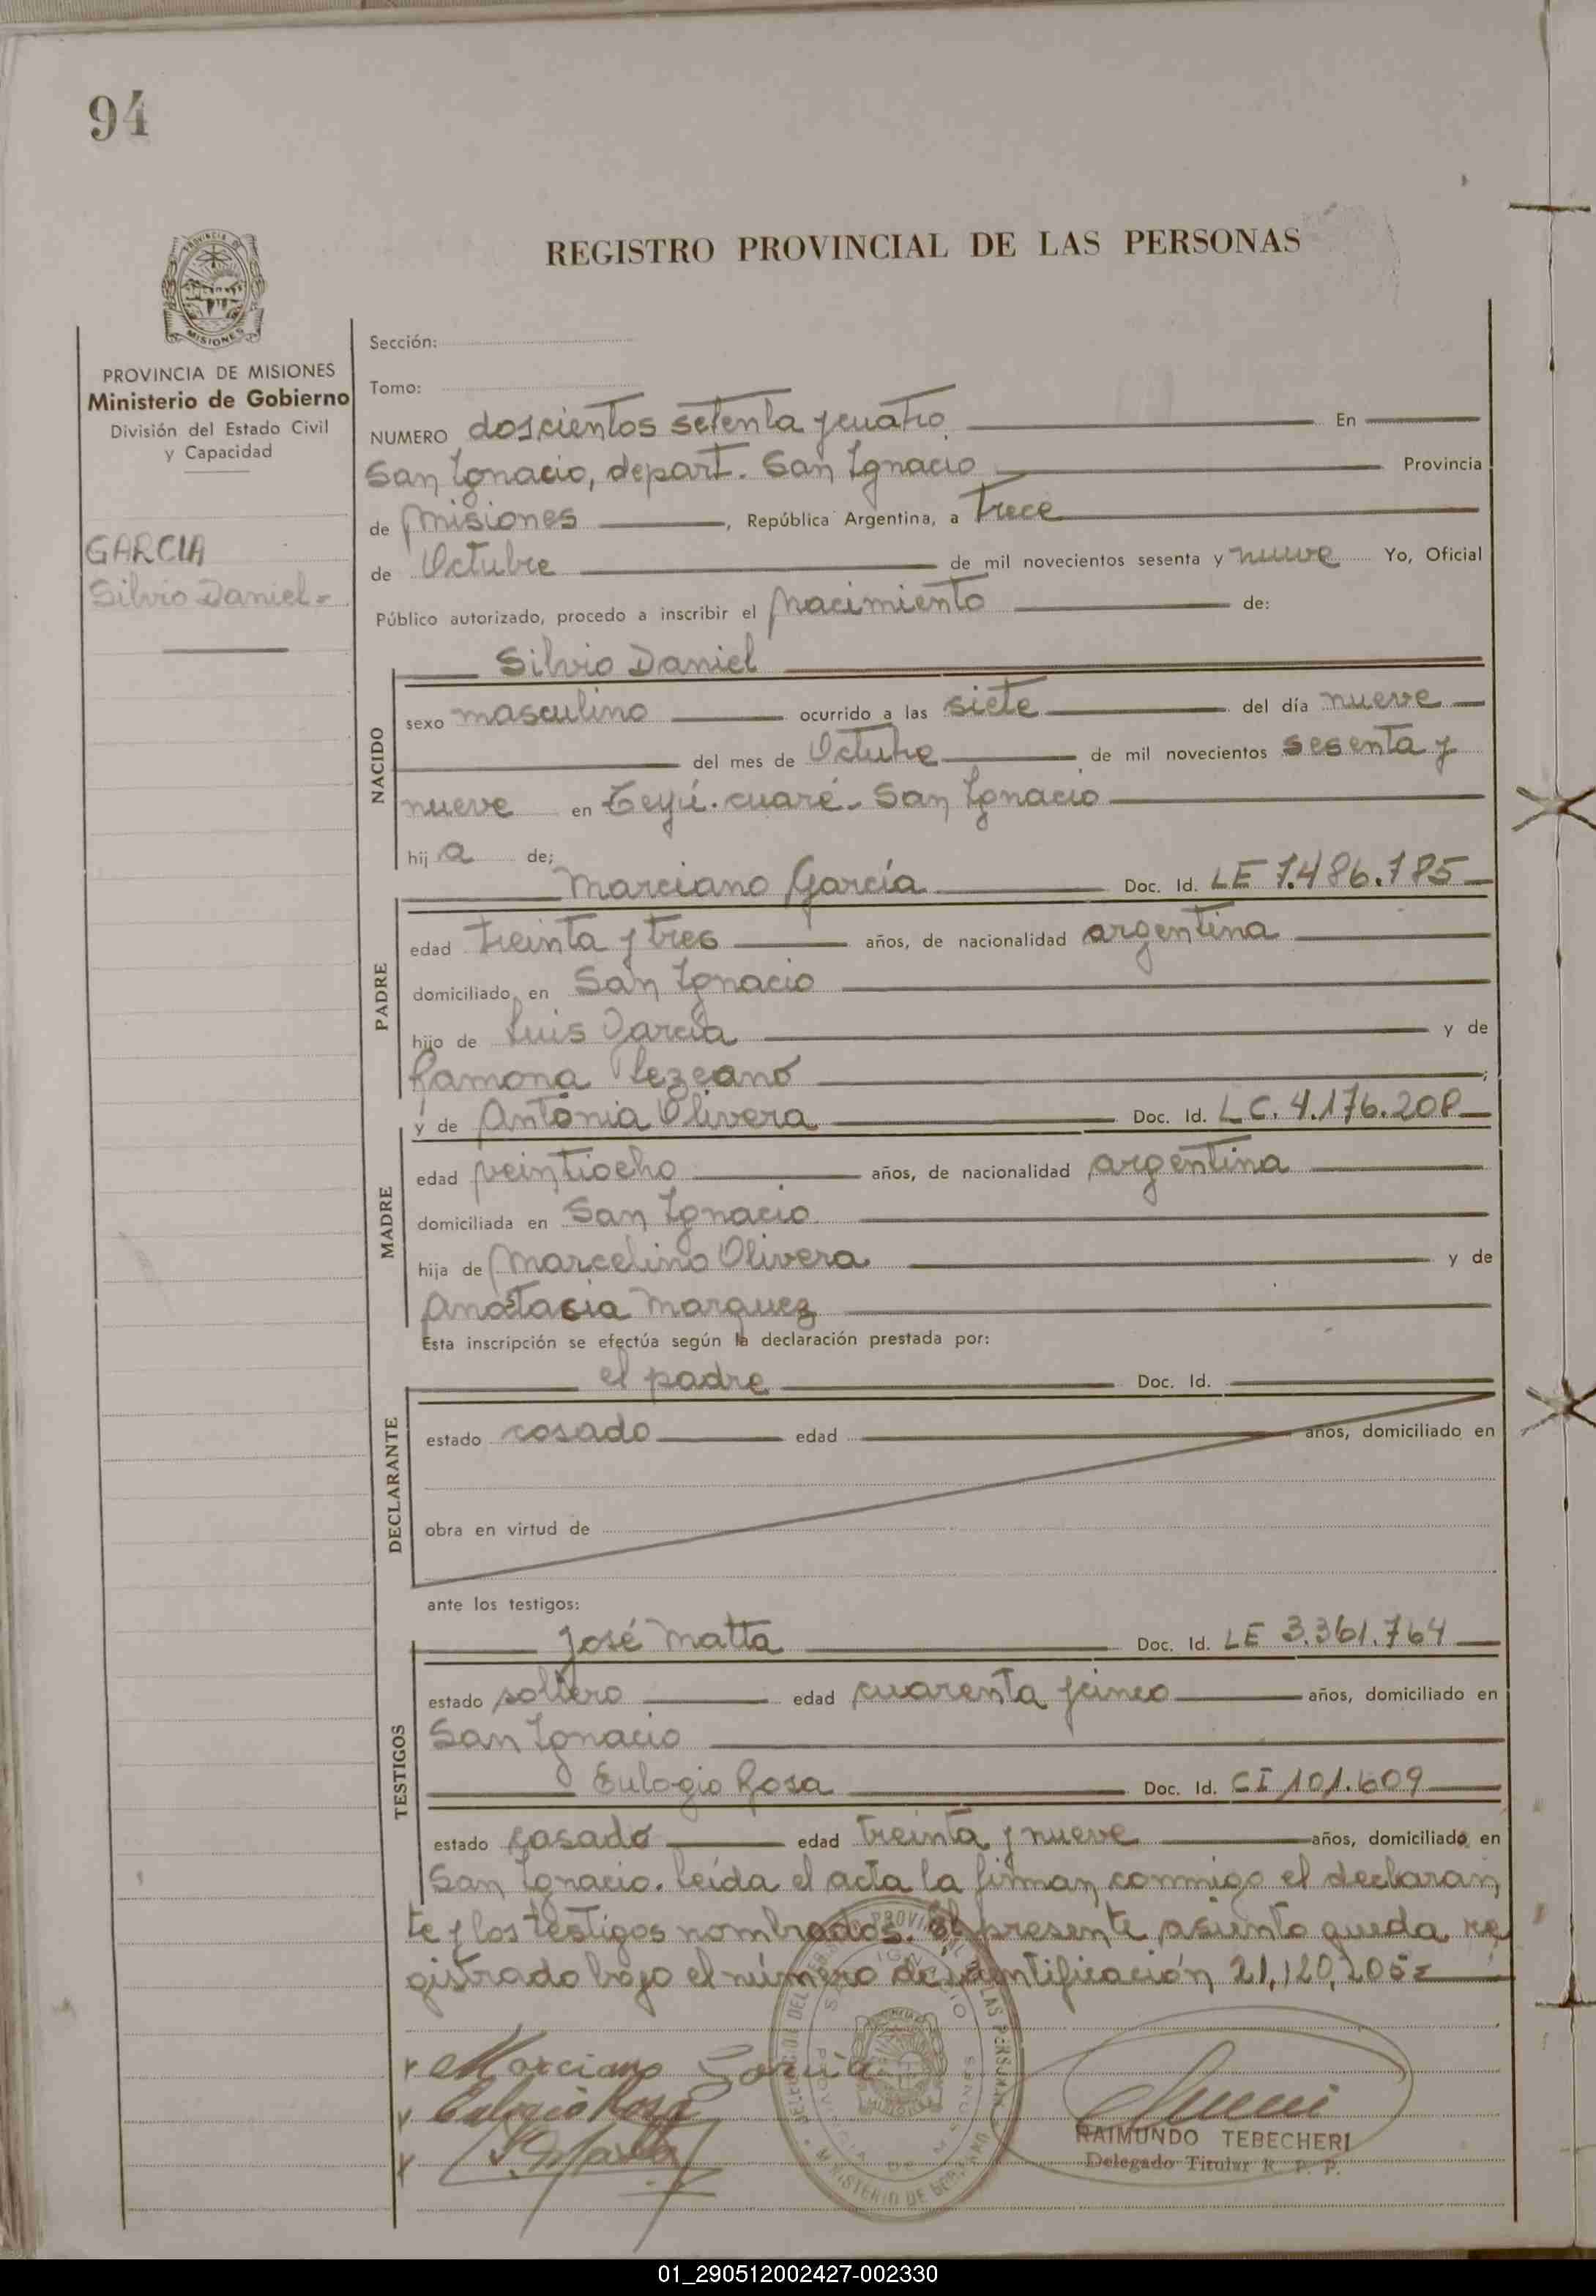 94
REGISTRO PROVINCIAL DE LAS PERSONAS
MISIONES
PROVINCIA DE MISIONES
Ministerio de Gobierno
División del Estado Civil
y Capacidad
GARCIA
Silvio Daniel
Sección:
Tomo:
NUMERO doscientos setenta y cuatro En
San Ignacio, depart. San Ignacio Provincia
de Misiones, República Argentina, a Trece
de Octubre de mil novecientos sesenta y nueve Yo, Oficial
Público autorizado, procedo a inscribir el Nacimiento de:
Silvio Daniel
NACIDO
sexo masculino ocurrido a las siete del día nueve
del mes de Octubre de mil novecientos sesenta y
nueve en Teyú-cuaré - San Ignacio
hij a de;
Marciano García Doc. Id. LE 7.486.785
PADRE
edad treinta y tres años, de nacionalidad argentina
domiciliado en San Ignacio
hijo de Luis García y de
Ramona Lezcano;
y de Antonia Olivera Doc. Id. LC. 4.176.208
MADRE
edad veintiocho años, de nacionalidad argentina
domiciliada en San Ignacio
hija de Marcelino Olivera y de
Anastacia Marquez
Esta inscripción se efectúa según la declaración prestada por:
el padre Doc. Id.
DECLARANTE
estado casado edad años, domiciliado en
obra en virtud de
ante los testigos:
José Matta Doc. Id. LE 3.361.764
TESTIGOS
estado soltero edad cuarenta y cinco años, domiciliado en
San Ignacio
Eulogio Rosa Doc. Id. CI 101.609
estado casado edad treinta y nueve años, domiciliado en
San Ignacio. Leída el acta la firman conmigo el declaran
te y los testigos nombrados. El presente asiento queda re
gistrado bajo el número de identificación 21.120.205=
Marciano García
Eulogio Rosa
J. Matta
RAIMUNDO TEBECHERI
Delegado Titular R. P. P.
01_290512002427-002330